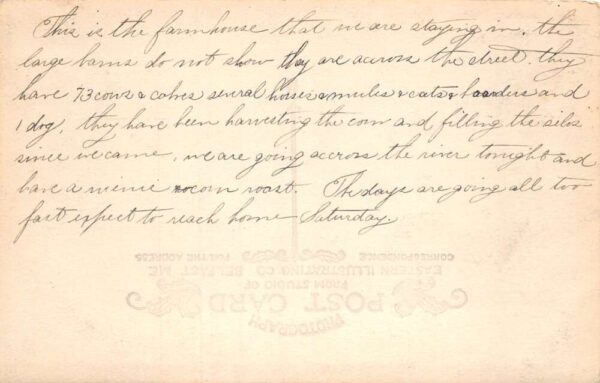 This is the farmhouse that we are staying in, the
large barns do not show they are accross the street. they
have 73 cows & calves several horses & mules & cats & boarders and
1 dog, they have been harvesting the corn and filling the silos
since we came, we are going accross the river tonight and
have a wienie & corn roast. The days are going all too
fast expect to reach home Saturday.
CORRESPONDENCE
FOR THE ADDRESS
EASTERN ILLUSTRATING CO BELFAST ME
FROM STUDIO OF
POST CARD
PHOTOGRAPH